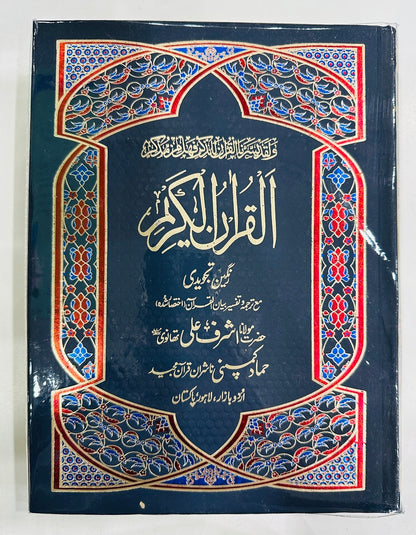 ولقد يسرنا القرآن للذكر فهل من مدكر
القرآن الكريم
رنگین تجویدی
مع ترجمہ و تفسیر بیان القرآن (اختصار شدہ)
حضرت مولانا اشرف علی تھانوی
حماد کمپنی ناشران قرآن مجید
اردو بازار، لاہور پاکستان